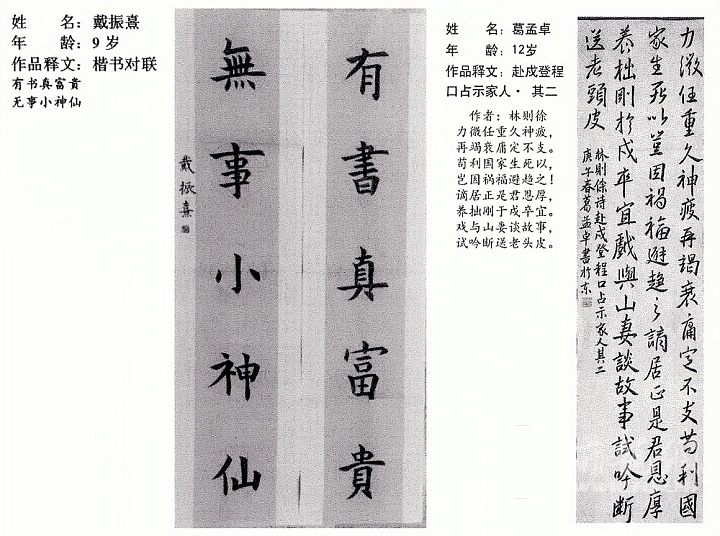 姓 名：戴振熹
年 龄：9 岁
作品释文：楷书对联
有书真富貴
无事小神仙
有書真富貴
無事小神仙
戴振熹
姓 名：葛孟卓
年 龄：12岁
作品释文：赴戍登程
口占示家人· 其二
作者：林则徐
力微任重久神疲，
再竭衰庸定不支。
苟利国家生死以，
岂因祸福避趋之！
谪居正是君恩厚，
养拙刚于戍卒宜。
戏与山妻谈故事，
试吟断送老头皮。
力微任重久神疲再竭衰庸定不支苟利國
家生死以豈因禍福避趨之謫居正是君恩厚
養拙剛於戍卒宜戲與山妻談故事試吟斷
送老頭皮
林則徐诗赴戍登程口占示家人其二
庚午春葛孟卓書於京